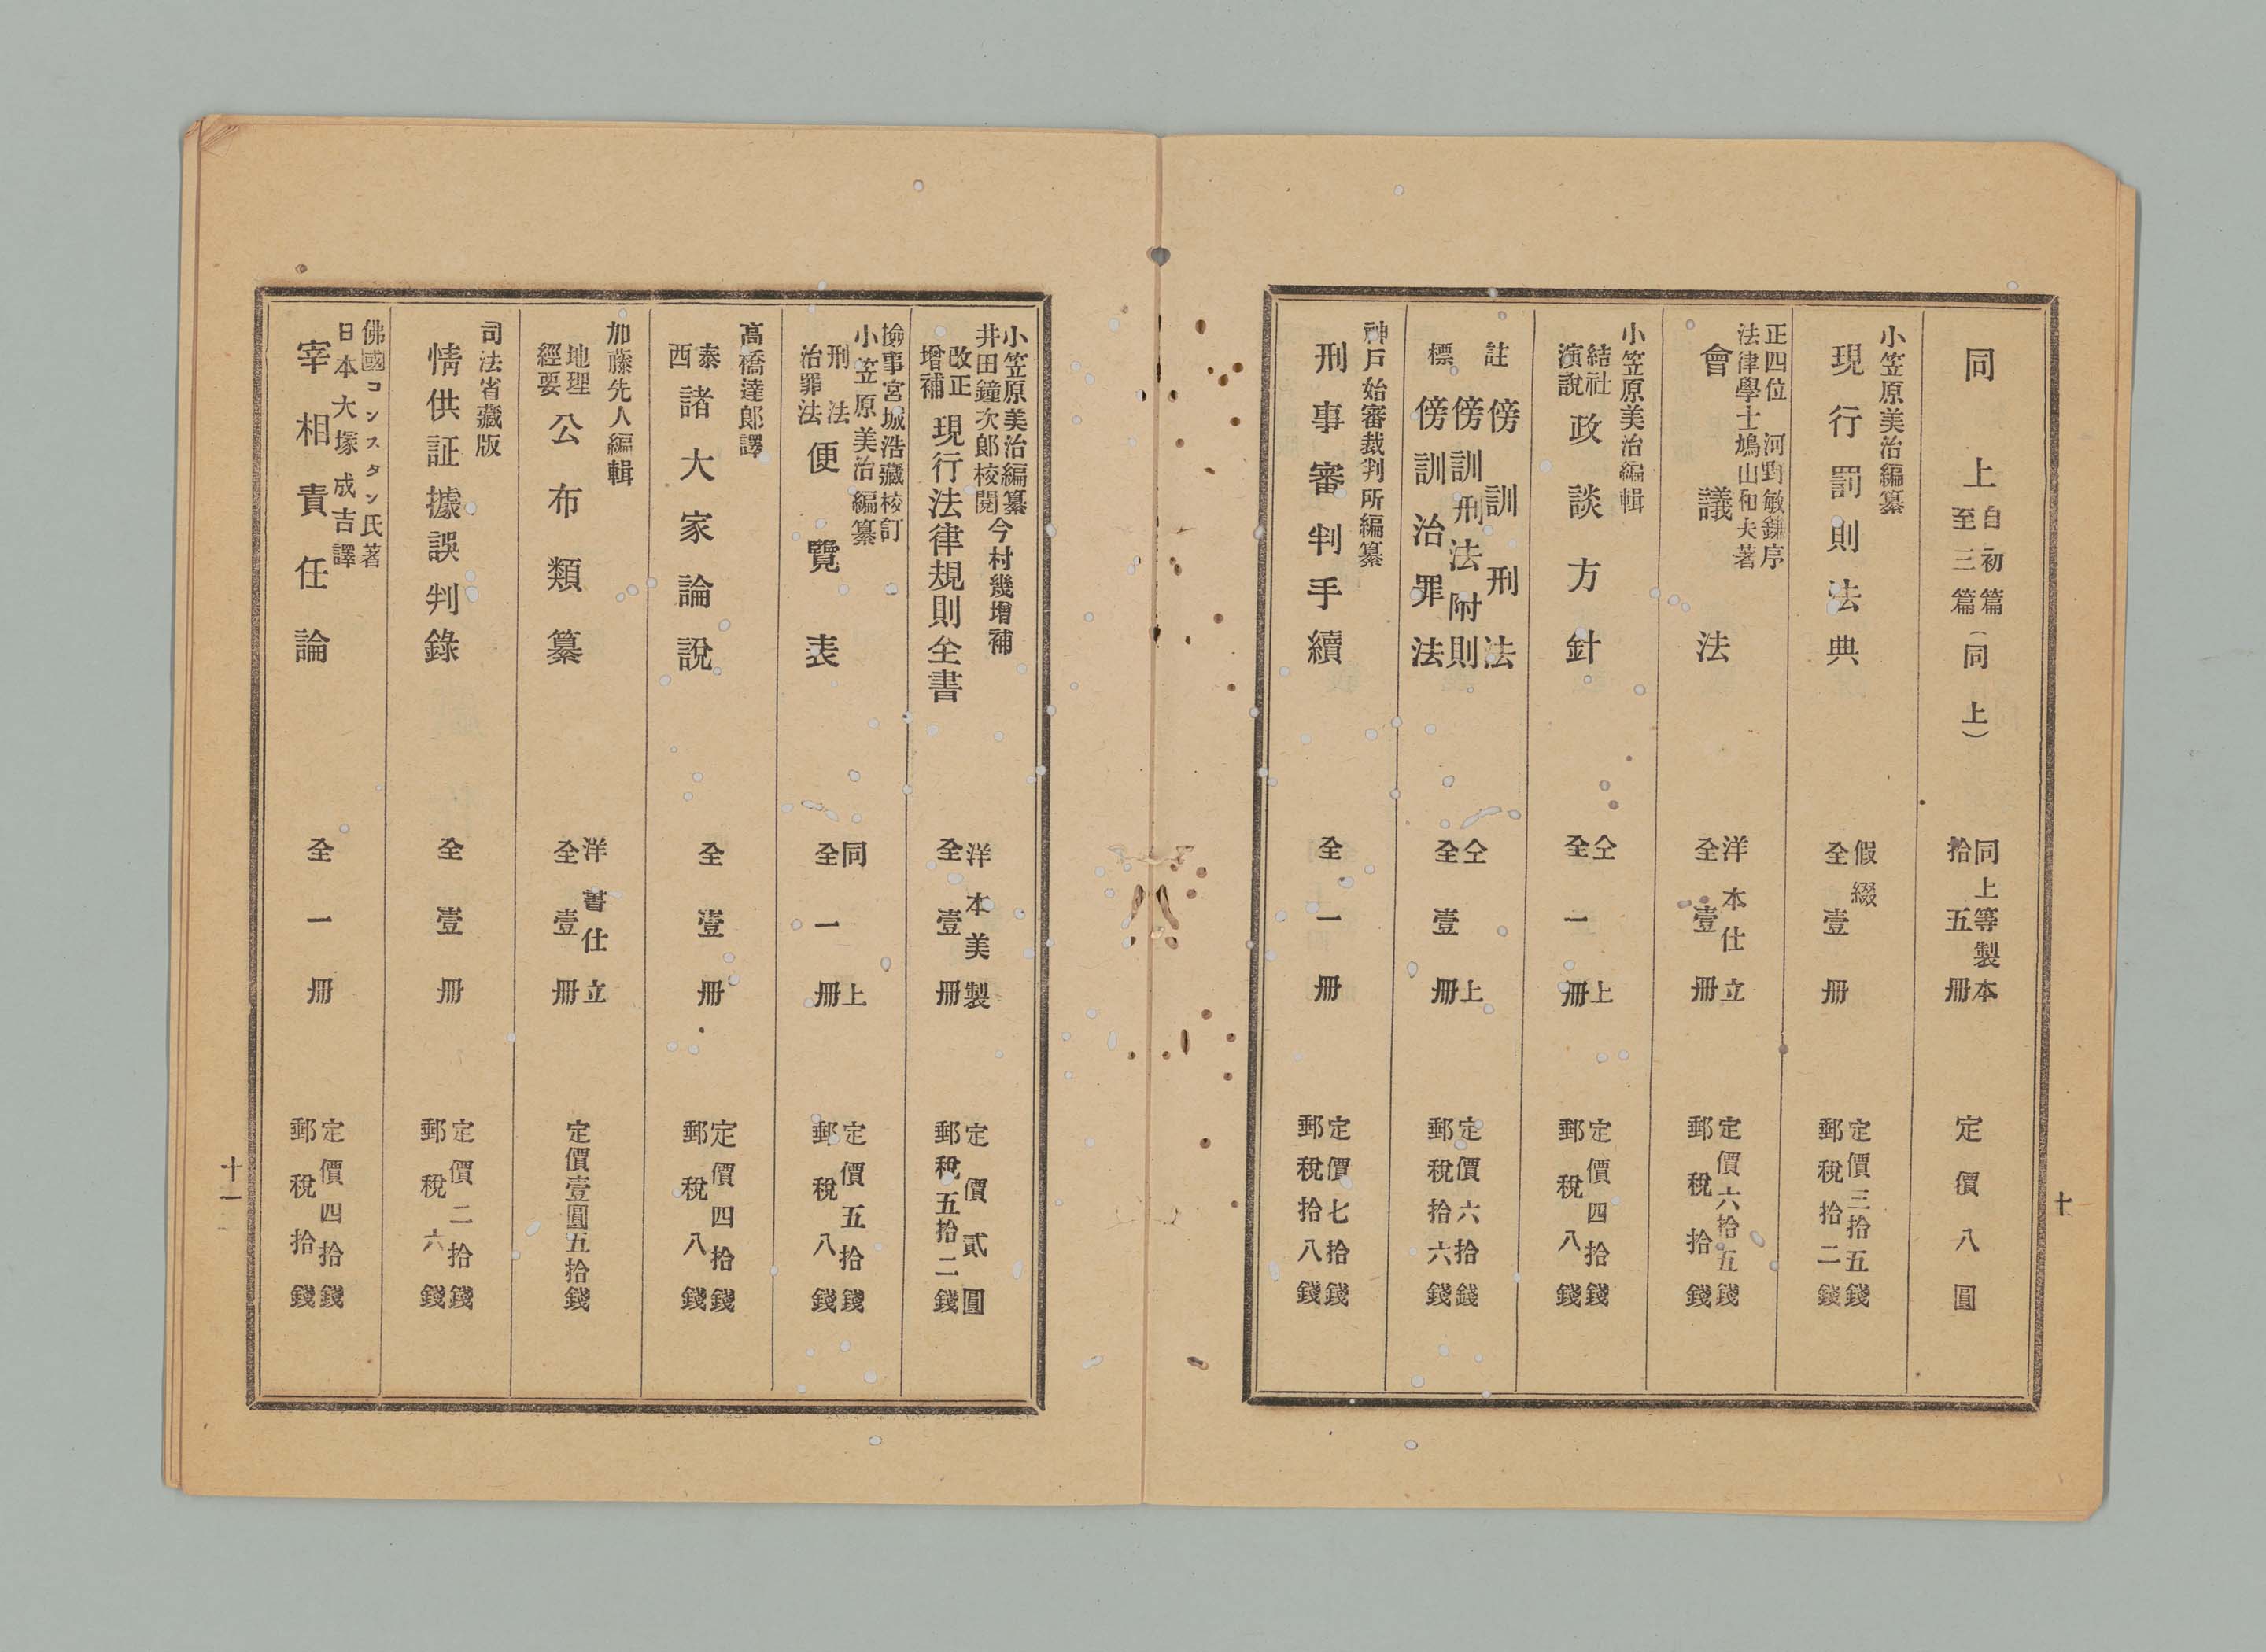 同上自初篇至三篇(同上)
同上等製本
拾五冊
定價八圓
小笠原美治編纂
現行罰則法典
假綴
全壹冊
定價三拾五錢
郵稅拾二錢
正四位 河野敏鎌序
法律學士鳩山和夫著
會議法
洋本仕立
全壹冊
定價六拾五錢
郵稅拾錢
小笠原美治編輯
結社
演說
政談方針
仝上
全一冊
定價四拾錢
郵稅八錢
標註
傍訓刑法
傍訓刑法附則
傍訓治罪法
仝上
全壹冊
定價六拾錢
郵稅拾六錢
神戸始審裁判所編纂
刑事審判手續
全一冊
定價七拾錢
郵稅拾八錢
十
小笠原美治編纂今村幾增補
井田鐘次郎校閱
改正
增補
現行法律規則全書
洋本美製
全壹冊
定價貳圓
郵稅五拾二錢
撿事宮城浩藏校訂
小笠原美治編纂
刑法
治罪法
便覽表
同上
全一冊
定價五拾錢
郵稅八錢
高橋達郎譯
泰西諸大家論說
全壹冊
定價四拾錢
郵稅八錢
加藤先人編輯
地理
經要
公布類纂
洋書仕立
全壹冊
定價壹圓五拾錢
司法省藏版
情供証據誤判錄
全壹冊
定價二拾錢
郵稅六錢
佛國コンスタン氏著
日本大塚成吉譯
宰相責任論
全一冊
定價四拾錢
郵稅拾錢
十一